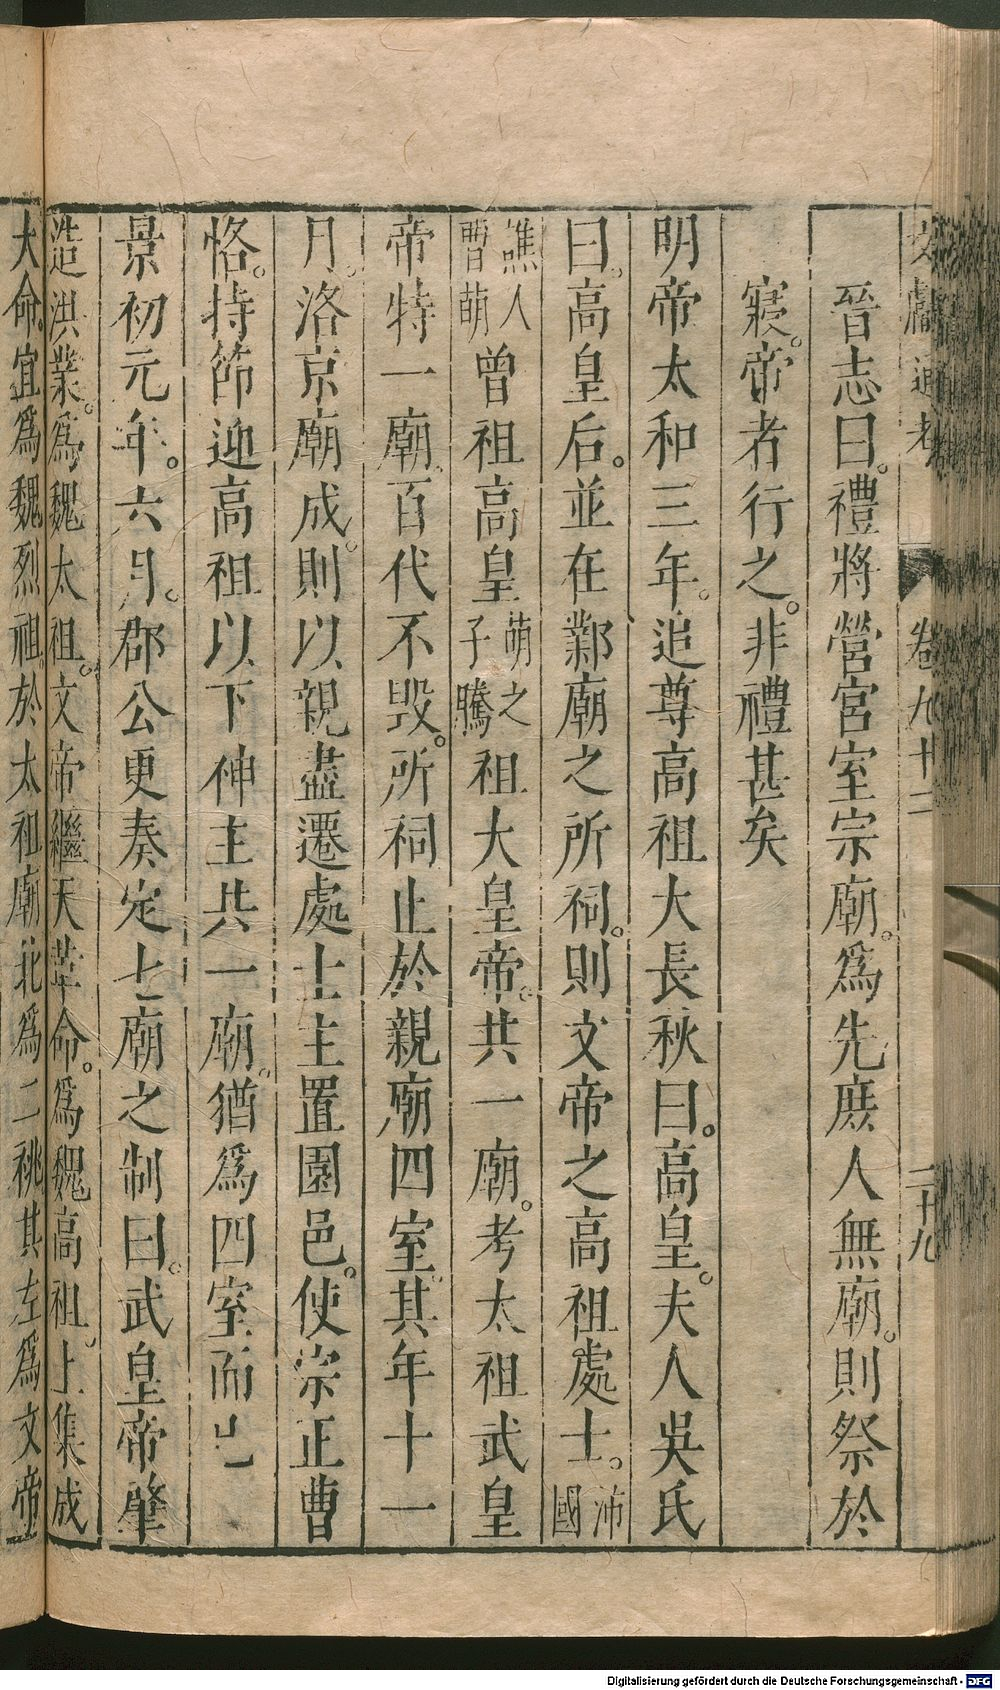 文獻通考 卷九十二 二十九
晉志曰。禮將營宮室宗廟。爲先庶人無廟。則祭於
寢。帝者行之。非禮甚矣
明帝太和三年。追尊高祖大長秋曰。高皇。夫人吳氏
曰。高皇后。並在鄴廟之所祠。則文帝之高祖處士。沛國
譙人曹萌曾祖高皇萌之子騰祖大皇帝。共一廟。考太祖武皇
帝特一廟。百代不毀。所祠止於親廟四室。其年十一
月。洛京廟成。則以親盡遷處士主置園邑。使宗正曹
恪。持節迎高祖以下神主共一廟。猶爲四室而已
景初元年。六月。郡公更奏定七廟之制曰。武皇帝肇
造洪業。爲魏太祖。文帝繼天革命。爲魏高祖。上集成
大命。宜爲魏烈祖。於太祖廟北爲二祧其左爲文帝
Digitalisierung gefördert durch die Deutsche Forschungsgemeinschaft - DFG